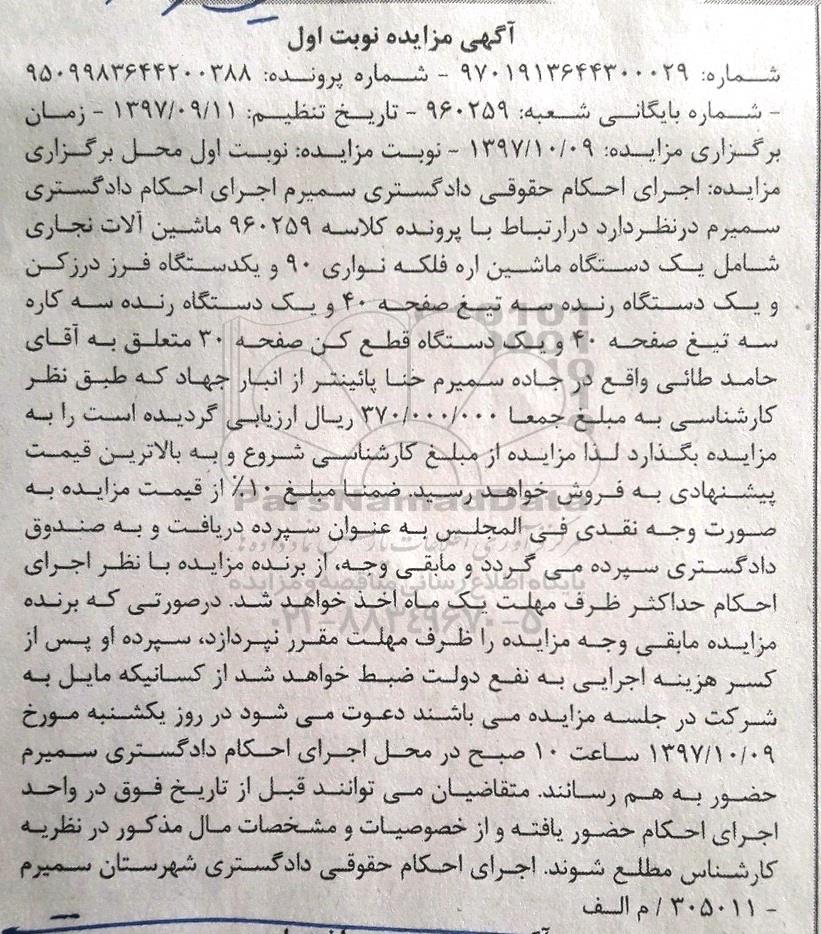 آگهی مزایده نوبت اول
شماره: ۹۷۰۱۹۱۳۶۴۴۳۰۰۰۲۹ - شماره پرونده: ۹۵۰۹۹۸۳۶۴۴۲۰۰۳۸۸
- شماره بایگانی شعبه: ۹۶۰۲۵۹ - تاریخ تنظیم: ۱۳۹۷/۰۹/۱۱ - زمان
برگزاری مزایده: ۱۳۹۷/۱۰/۰۹ - نوبت مزایده: نوبت اول محل برگزاری
مزایده: اجرای احکام حقوقی دادگستری سمیرم اجرای احکام دادگستری
سمیرم درنظردارد درارتباط با پرونده کلاسه ۹۶۰۲۵۹ ماشین آلات نجاری
شامل یک دستگاه ماشین اره فلکه نواری ۹۰ و یکدستگاه فرز درزکن
و یک دستگاه رنده سه تیغ صفحه ۴۰ و یک دستگاه رنده سه کاره
سه تیغ صفحه ۴۰ و یک دستگاه قطع کن صفحه ۳۰ متعلق به آقای
حامد طائی واقع در جاده سمیرم حنا پائینتر از انبار جهاد که طبق نظر
کارشناسی به مبلغ جمعا ۳۷۰/۰۰۰/۰۰۰ ریال ارزیابی گردیده است را به
مزایده بگذارد لذا مزایده از مبلغ کارشناسی شروع و به بالاترین قیمت
پیشنهادی به فروش خواهد رسید. ضمنا مبلغ ۱۰٪ از قیمت مزایده به
صورت وجه نقدی فی المجلس به عنوان سپرده دریافت و به صندوق
دادگستری سپرده می گردد و مابقی وجه، از برنده مزایده با نظر اجرای
احکام حداکثر ظرف مهلت یک ماه اخذ خواهد شد. درصورتی که برنده
مزایده مابقی وجه مزایده را ظرف مهلت مقرر نپردازد، سپرده او پس از
کسر هزینه اجرایی به نفع دولت ضبط خواهد شد از کسانیکه مایل به
شرکت در جلسه مزایده می باشند دعوت می شود در روز یکشنبه مورخ
۱۳۹۷/۱۰/۰۹ ساعت ۱۰ صبح در محل اجرای احکام دادگستری سمیرم
حضور به هم رسانند. متقاضیان می توانند قبل از تاریخ فوق در واحد
اجرای احکام حضور یافته و از خصوصیات و مشخصات مال مذکور در نظریه
کارشناس مطلع شوند. اجرای احکام حقوقی دادگستری شهرستان سمیرم
- ۳۰۵۰۱۱ / م الف
ParsNamadData
پایگاه اطلاع رسانی مناقصه و مزایده
۰۲۱-۸۸۳۴۹۶۷۰-۵